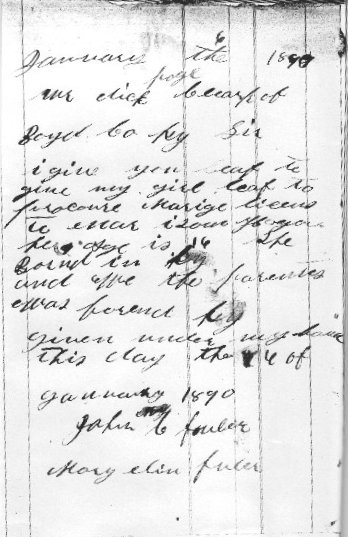 January the 6 1890
page
mr dick
Boyd Co Ky Sir
i give you leaf to
give my girl leaf to
procure marige licens
to
her age is 16 she
Bornd in Ky
and We the parentes
Was bornd Ky
given under my han
this day the 6 of
January 1890
John C fuller
Mary elin fuler